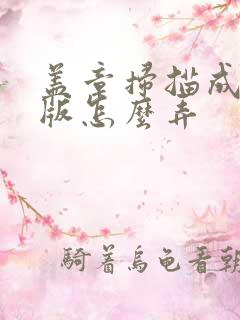 盖章掃描成
版怎麼弄
騎着烏龜看朝